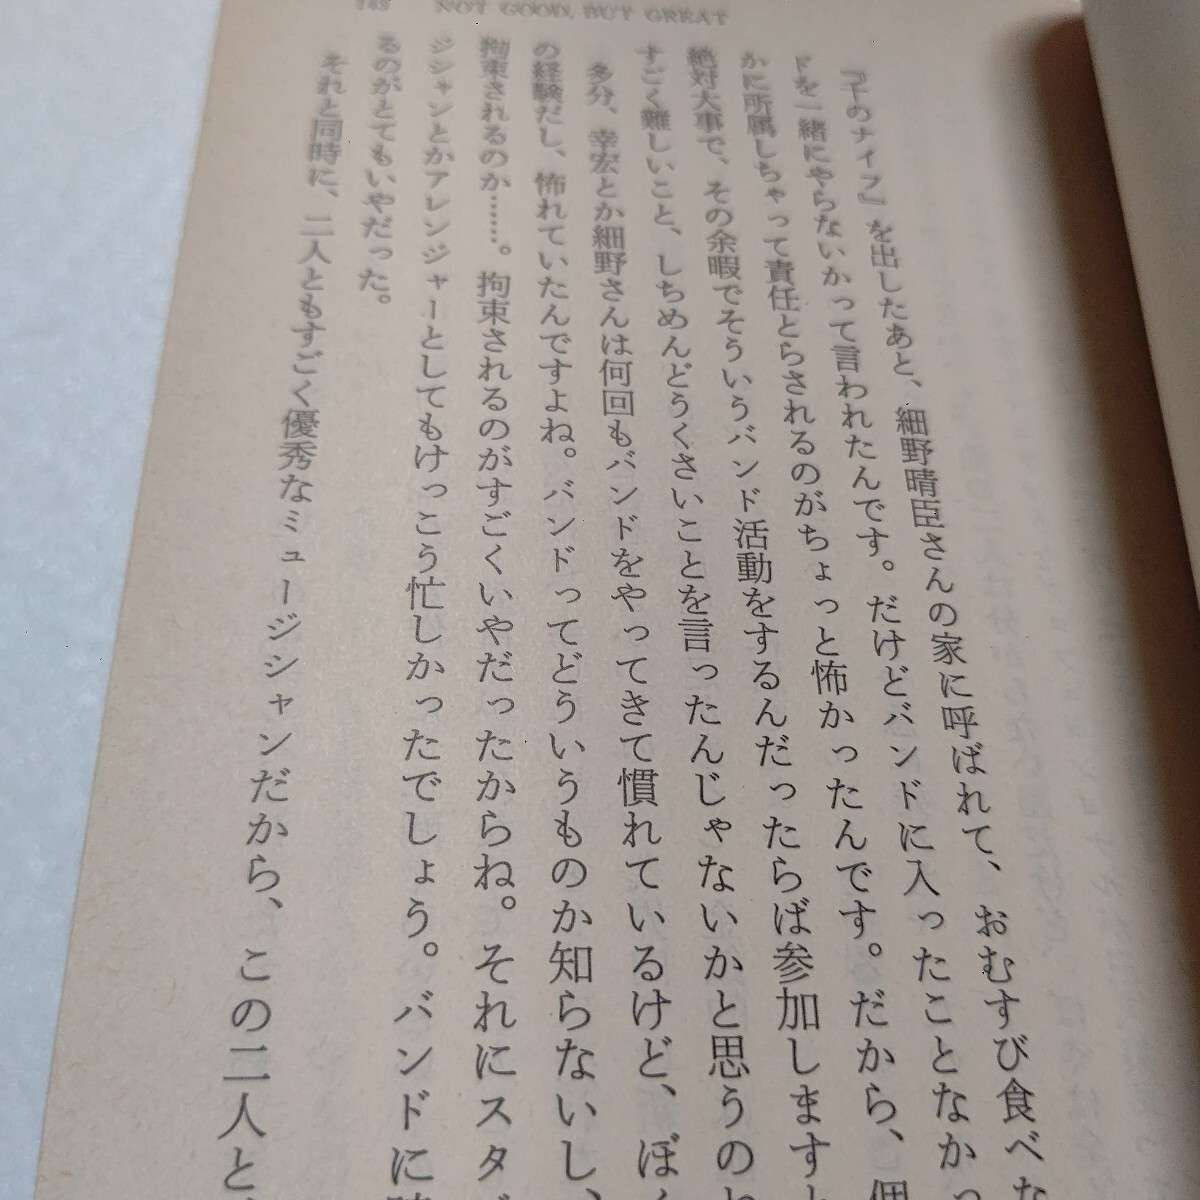 NOT GOOD, BUT GREAT
『千のナイフ』を出したあと、細野晴臣さんの家に呼ばれて、おむすび食べな
ドを一緒にやらないかって言われたんです。だけどバンドに入ったことなかっ
かに所属しちゃって責任とらされるのがちょっと怖かったんです。だから、個
絶対大事で、その余暇でそういうバンド活動をするんだったらば参加しますと
すごく難しいこと、しちめんどうくさいことを言ったんじゃないかと思うのね
多分、幸宏とか細野さんは何回もバンドをやってきて慣れているけど、ぼく
の経験だし、怖れていたんですよね。バンドってどういうものか知らないし、
拘束されるのか……。拘束されるのがすごくいやだったからね。それにスタジ
ジシャンとかアレンジャーとしてもけっこう忙しかったでしょう。バンドに
るのがとてもいやだった。
それと同時に、二人ともすごく優秀なミュージシャンだから、この二人と